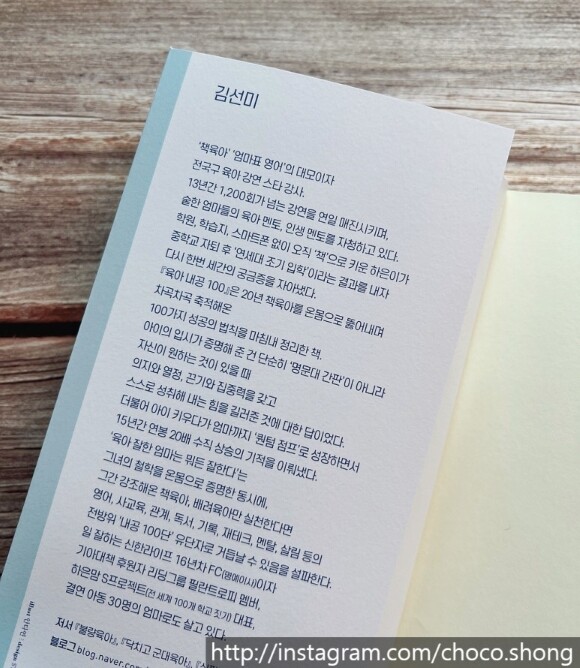 김선미
'책육아' '엄마표 영어'의 대모이자
전국구 육아 강연 스타 강사.
13년간 1,200회가 넘는 강연을 연일 매진시키며,
숱한 엄마들의 육아 멘토, 인생 멘토를 자청하고 있다.
학원, 학습지, 스마트폰 없이 오직 '책'으로 키운 하은이가
중학교 자퇴 후 '연세대 조기 입학'이라는 결과를 내자
다시 한번 세간의 궁금증을 자아냈다.
『육아 내공 100』은 20년 책육아를 온몸으로 뚫어내며
차곡차곡 축적해온
100가지 성공의 법칙을 마침내 정리한 책.
아이의 입시가 증명해 준 건 단순히 '명문대 간판'이 아니라
자신이 원하는 것이 있을 때
의지와 열정, 끈기와 집중력을 갖고
스스로 성취해 내는 힘을 길러준 것에 대한 답이었다.
더불어 아이 키우다가 엄마까지 '퀀텀 점프'로 성장하면서
15년간 연봉 20배 수직 상승의 기적을 이뤄냈다.
'육아 잘한 엄마는 뭐든 잘한다'는
그녀의 철학을 온몸으로 증명한 동시에,
그간 강조해온 책육아, 배려육아만 실천한다면
영어, 사교육, 관계, 독서, 기록, 재테크, 멘탈, 살림 등의
전방위 '내공 100단' 유단자로 거듭날 수 있음을 설파한다.
일 잘하는 신한라이프 16년차 FC(명예이사)이자
기아대책 후원자 리딩그룹 필란트로피 멤버,
하은맘 S프로젝트(전 세계 100개 학교 짓기) 대표,
결연 아동 30명의 엄마로도 살고 있다.
저서 『불량육아』, 『닥치고 군대육아』,
블로그 blog.naver.com
http://instagram.com/choco.shong